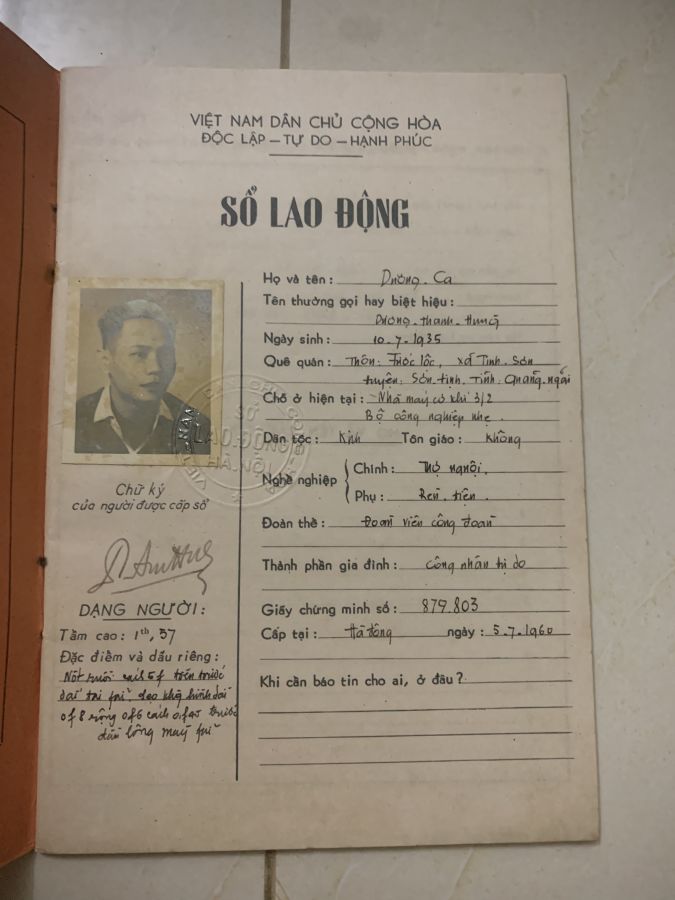 VIỆT NAM DÂN CHỦ CỘNG HÒA
ĐỘC LẬP — TỰ DO — HẠNH PHÚC
SỔ LAO ĐỘNG
Họ và tên : Dương. Ca
Tên thường gọi hay biệt hiệu :
Dương. thanh. Hưng
Ngày sinh : 10. 7. 1935
Quê quán : Thôn. Phước lộc, xã Tịnh. Sơn
huyện. Sơn. tịnh, Tỉnh. Quảng. ngãi
Chỗ ở hiện tại : Nhà máy cơ khí 3/2
Bộ công nghiệp nhẹ.
Dân tộc : Kinh Tôn giáo : Không
Nghề nghiệp
Chính : Thợ nguội.
Phụ : Rèn. tiện.
Đoàn thể : Đoàn viên công đoàn
Thành phần gia đình : Công nhân
Giấy chứng minh số : 879.803
Cấp tại : Hà đông ngày : 5.7.1960
Khi cần báo tin cho ai, ở đâu ?
Chữ ký
của người được cấp sổ
DẠNG NGƯỜI :
Tầm cao : 1th, 57
Đặc điểm và dấu riêng :
Nốt ruồi cách trên trước
sẹo
rộng cách trước
lông mày
SỞ
LAO.ĐỘNG
HÀ.NỘI